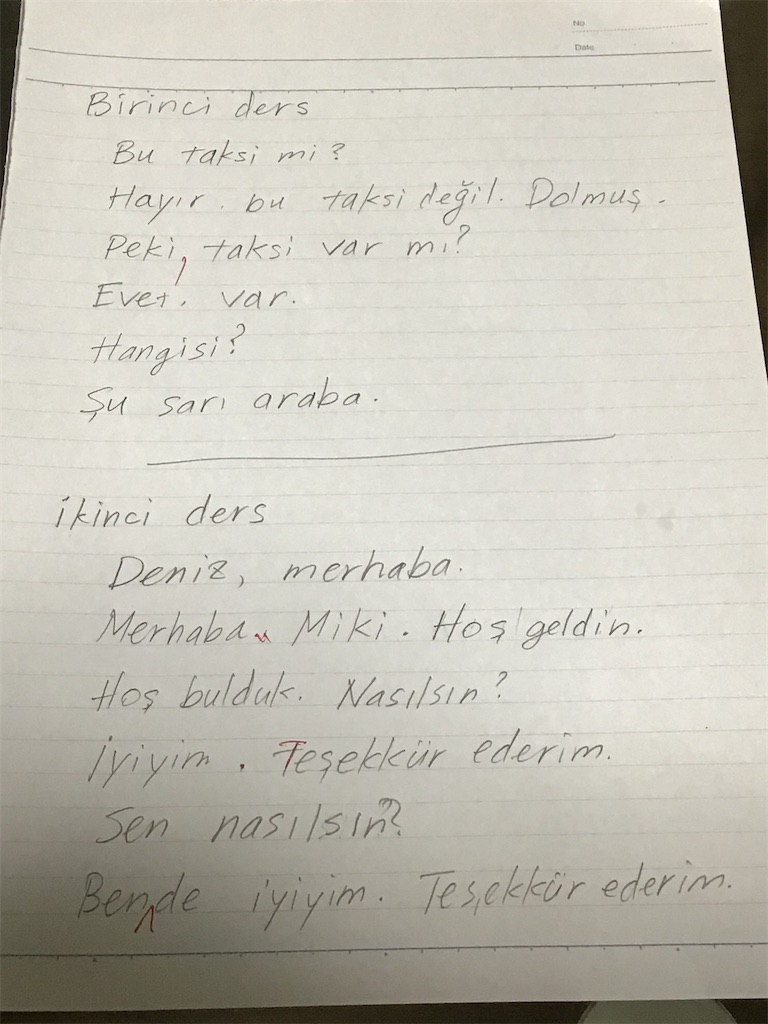 No
Date
Birinci ders
Bu taksi mi?
Hayır. bu taksi değil. Dolmuş.
Peki, taksi var mı?
Evet. var.
Hangisi?
Şu sarı araba.
İkinci ders
Deniz, merhaba.
Merhaba. Miki. Hoş geldin.
Hoş bulduk. Nasılsın?
İyiyim. Teşekkür ederim.
Sen nasılsın?
Ben de iyiyim. Teşekkür ederim.